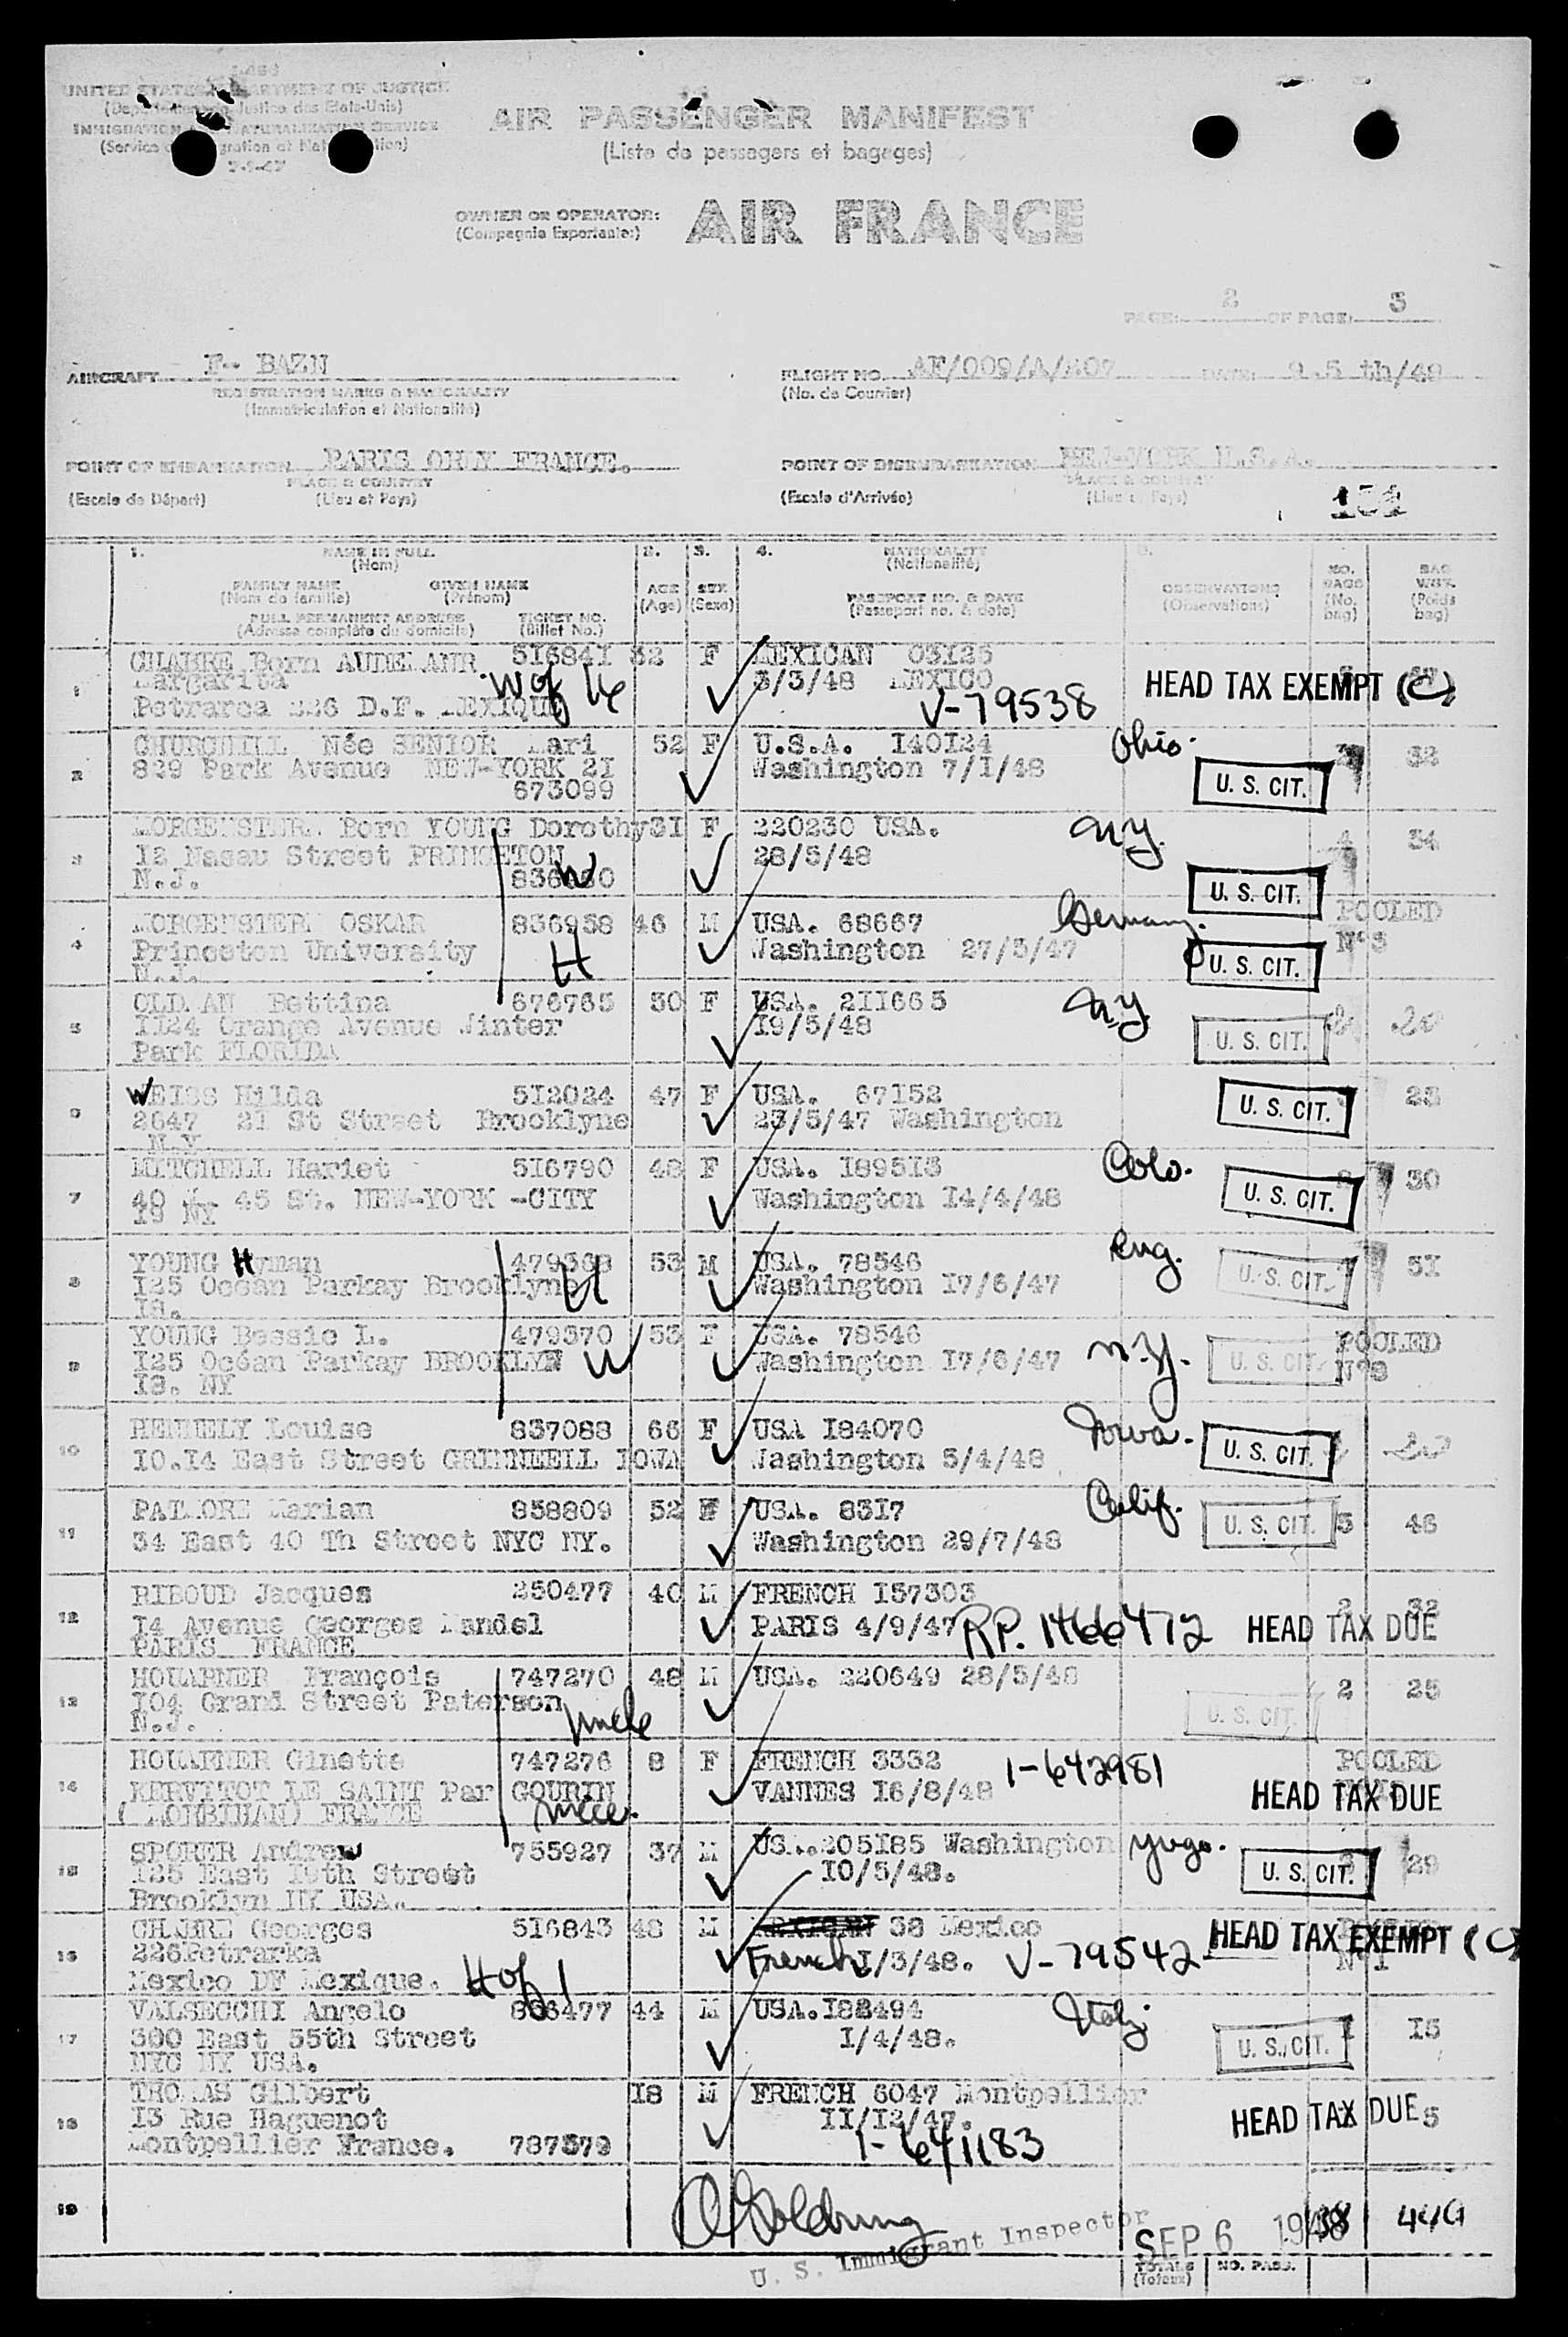 I-466
UNITED STATES DEPARTMENT OF JUSTICE
(Département Justice des Etats-Unis)
IMMIGRATION NATURALIZATION SERVICE
AIR PASSENGER MANIFEST
(Liste de passagers et bagages)
OWNER OR OPERATOR:
(Compagnie Exportante:)
AIR FRANCE
PAGE: 2 OF PAGE: 3
AIRCRAFT F-BAZN
REGISTRATION MARKS & NATIONALITY
(Immatriculation et Nationalité)
FLIGHT NO. AF/009/A/407 DATE: 9.5 th/48
(No. de Courrier)
POINT OF EMBARKATION PARIS ORLY FRANCE.
PLACE & COUNTRY
(Escale de Départ) (Lieu et Pays)
POINT OF DISEMBARKATION NEW-YORK U.S.A.
PLACE & COUNTRY
(Escale d'Arrivée) (Lieu et Pays)
1. NAME IN FULL 2. 3. 4. NATIONALITY 5.
(Nom) (Nationalité)
FAMILY NAME GIVEN NAME AGE SEX PASSPORT NO. & DATE OBSERVATIONS NO. BAGG BAG WGT.
(Nom de famille) (Prénom) (Age) (Sexe) (Passeport no. & date) (Observations) (No. bag) (Poids bag)
FULL PERMANENT ADDRESS TICKET NO.
(Adresse complète du domicile) (Billet No.)
1 CHABRE Born AUDELANR 516841 32 F MEXICAN 03125
Margarita W of 16 3/3/48 MEXICO HEAD TAX EXEMPT (C)
Petrarca 226 D.F. MEXIQUE V-79538
2 CHURCHILL Née SENIOR Mari 52 F U.S.A. 140124 Ohio. 32
829 Park Avenue NEW-YORK 21 Washington 7/1/48 U. S. CIT.
673099
3 MORGENSTERN Born YOUNG Dorothy 31 F 220230 USA. N.Y. 4 34
12 Nasau Street PRINCETON W 28/5/48
N.J. U. S. CIT.
4 MORGENSTERN OSKAR 836958 46 M USA. 68667 Germany. POOLED
Princeton University H Washington 27/3/47 U. S. CIT. N°3
N.J.
5 OLDMAN Bettina 676765 30 F USA. 211665 N.Y. 20
1124 Orange Avenue Winter 19/5/48 U. S. CIT.
Park FLORIDA
6 WEISS Hilda 512024 47 F USA. 67152 23
2647 21 St Street Brooklyne 23/5/47 Washington U. S. CIT.
N.Y
7 MITCHELL Hariet 516790 48 F USA. 189513 Colo. 30
49 W 45 St. NEW-YORK -CITY Washington 14/4/48 U. S. CIT.
19 NY
8 YOUNG Hyman 479369 53 M USA. 78546 Eng. 51
125 Océan Parkay Brooklyne H Washington 17/6/47 U. S. CIT.
18.
9 YOUNG Bessie L. 479370 53 F USA. 78546 N.Y. POOLED
125 Océan Parkay BROOKLYN W Washington 17/6/47 U. S. CIT. N°8
18. NY
10 HENNELY Louise 837088 66 F USA 184070 Iowa. 20
10.14 East Street GRINNEELL IOWA Washington 5/4/48 U. S. CIT.
11 PALMORE Marian 858809 52 F USA. 8317 Calif. 3 46
34 East 40 Th Street NYC NY. Washington 29/7/48 U. S. CIT.
12 RIBOUD Jacques 250477 40 M FRENCH 157303 2 32
14 Avenue Georges Mandel PARIS 4/9/47 RP. 1466472 HEAD TAX DUE
PARIS FRANCE
13 HOUARNER François 747270 48 M USA. 220649 28/5/48 2 25
104 Grand Street Paterson uncle U. S. CIT.
N.J.
14 HOUARNER Ginette 747276 8 F FRENCH 3332 1-642981 POOLED
KERVITOT LE SAINT Par GOURIN VANNES 16/8/48 HEAD TAX DUE
( MORBIHAN) FRANCE niece.
15 SPORER Andrew 755927 37 M USA.205185 Washington Yugo. 29
125 East 19th Street 10/5/48. U. S. CIT.
Brooklyn NY USA.
16 CHABRE Georges 516843 48 M 38 Mexico HEAD TAX EXEMPT (C)
226Petrarka French 1/3/48. V-79542 N°1
Mexico DF Mexique. H of 1
17 VALSECCHI Angelo 836477 44 M USA.188494 Italy 1 15
300 East 55th Street 1/4/48. U. S. CIT.
NYC NY USA.
18 THOMAS Gilbert 18 M FRENCH 6047 Montpellier
13 Rue Haguenot 11/12/47. HEAD TAX DUE 5
Montpellier France. 787579 1-641183
19
U. S. Immigrant Inspector SEP 6 1948 38
TOTALS NO. PASS.
(Totaux)